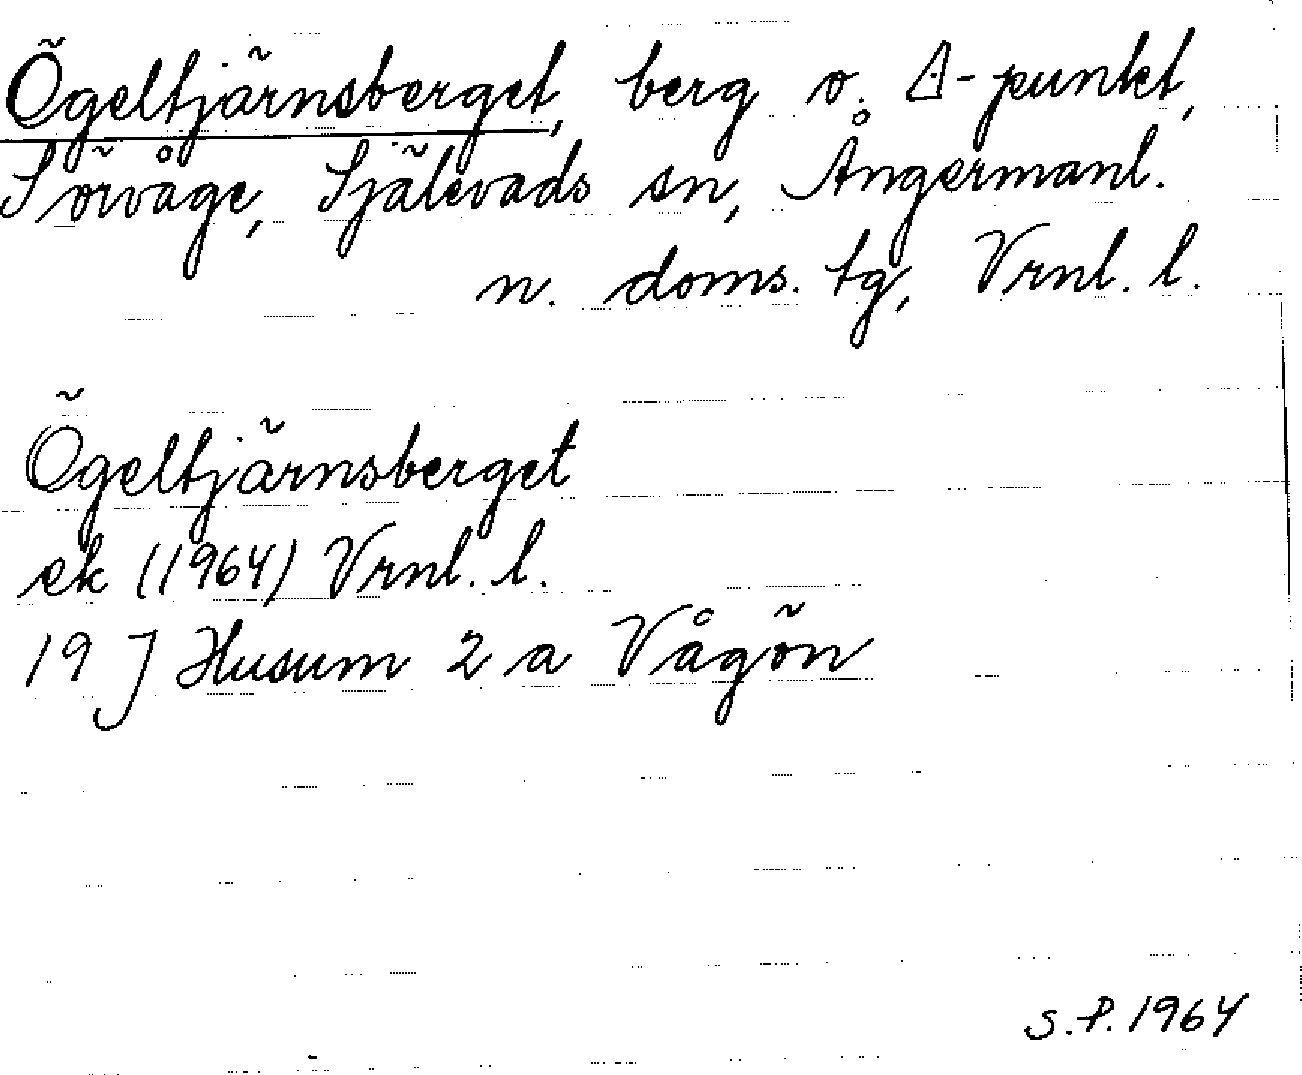 Ögeltjärnsberget, berg o. Δ-punkt,
Sörvåge, Själevads sn, Ångermanl.
n. doms. tg, Vrnl. l.
Ögeltjärnsberget
ek (1964) Vrnl. l.
19 J Husum 2 a Vågön
S.P. 1964